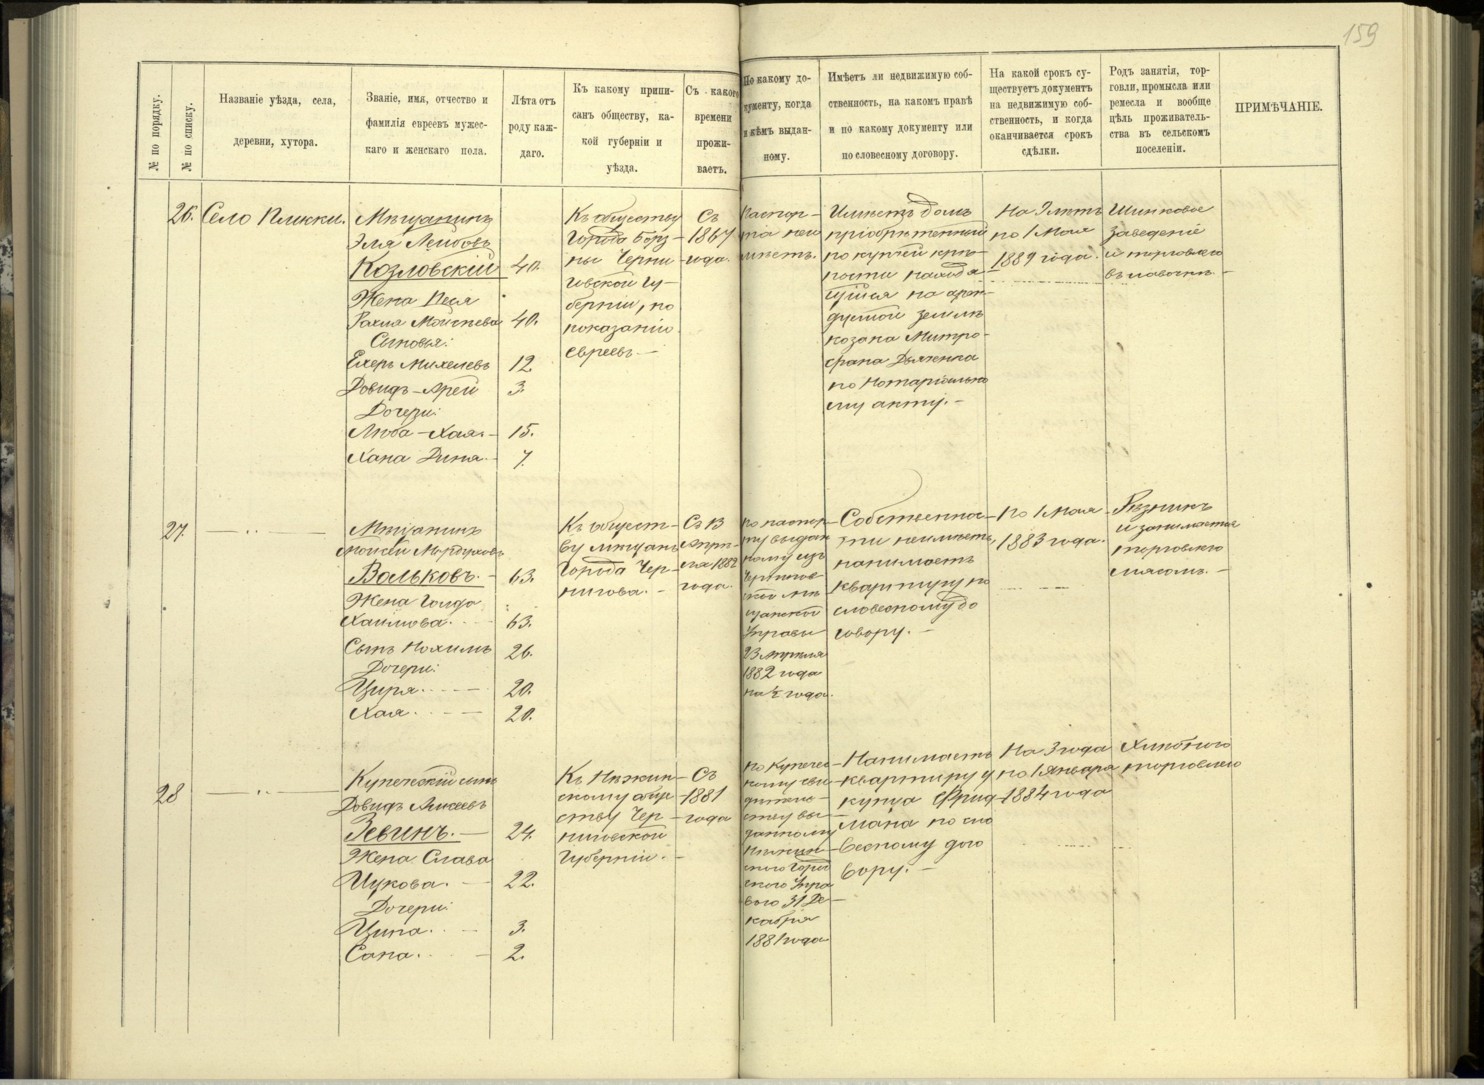 159
№ по порядку.
№ по списку.
Названіе уѣзда, села,
деревни, хутора.
Званіе, имя, отчество и
фамилія евреевъ мужес-
каго и женскаго пола.
Лѣта отъ
роду каж-
даго.
Къ какому припи-
санъ обществу, ка-
кой губерніи и
уѣзда.
Съ какого
времени
прожи-
ваетъ.
По какому до-
кументу, когда
и кѣмъ выдан-
ному.
Имѣетъ ли недвижимую соб-
ственность, на какомъ правѣ
и по какому документу или
по словесному договору.
На какой срокъ су-
ществуетъ документъ
на недвижимую соб-
ственность, и когда
оканчивается срокъ
сдѣлки.
Родъ занятія, тор-
говли, промысла или
ремесла и вообще
цѣль проживатель-
ства въ сельскомъ
поселеніи.
ПРИМѢЧАНІЕ.
26.
Село Плиски.
Мѣщанинъ
Эля Лейбовъ
Козловскій 40.
Жена Песя
Рахля Мойсѣева 40.
Сыновья:
Михелевъ 12
Довидъ-Арей 3.
Дочери:
Люба-Хая. 15.
Хана Дина. 7.
Къ обществу
Города Борз-
ны Черни-
говской Гу-
берніи, по
показанію
евреевъ
Съ
1867
года.
Паспор-
та неи
мѣетъ.
Имѣетъ домъ
пріобрѣтенный
по купчей крѣ-
пости находя
щійся на арен-
дуемой землѣ
козака Митро-
фана Дьяченка
по Нотаріально
му акту.
На 7 лѣтъ
по 1 Мая
1889 года.
Шинковое
заведеніе
и торговлею
въ лавочкѣ.
27.
Мѣщанинъ
Мойсей Мордуховъ
Вольковъ. 63.
Жена Голда
Хаимова. 63.
Сынъ Нохимъ 26.
Дочери:
Цира. 20.
Хая. 20.
Къ общест-
ву мѣщанъ
Города Чер-
нигова.
Съ 13
Апрѣ-
ля 1882
года.
по паспор-
ту выдан
ному изъ
Чернигов-
ской мѣ-
щанской
Управы
23 Апрѣля
1882 года
на ½ года.
Собственнос-
ти неимѣетъ,
нанимаетъ
квартиру по
словесному до
говору.
по 1 Мая
1883 года.
Рѣзникъ
и занимается
торговлею
мясомъ.
28
Купеческій сынъ
Довидъ
Зевинъ. 24.
Жена Слава
Ицкова. 22.
Дочери:
Ципа. 3.
Сапа. 2.
Къ Нѣжин-
скому обще
ству Чер-
ниговской
Губерніи.
Съ
1881
года
по Купечес-
кому сви-
дѣтель-
ству вы-
данному
Нѣжин-
скою Город
ского Упра
вою 31 Де-
кабря
1881 года
Нанимаетъ
квартиру у
купца Фрид-
мана по сло
весному дого
вору.
На 3 года
по 1 Января
1884 года
Хлѣбною
торговлею